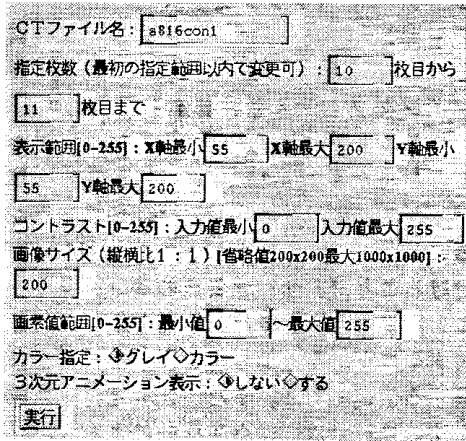 CTファイル名： a816con1
指定枚数（最初の指定範囲以内で変更可）： 10 枚目から
11 枚目まで
表示範囲[0-255]：X軸最小 55 X軸最大 200 Y軸最小
55 Y軸最大 200
コントラスト[0-255]：入力値最小 0 入力値最大 255
画像サイズ（縦横比1：1）[省略値200x200最大1000x1000]：
200
画素値範囲[0-255]：最小値 0 〜最大値 255
カラー指定：◈グレイ◇カラー
3次元アニメーション表示：◈しない◇する
実行